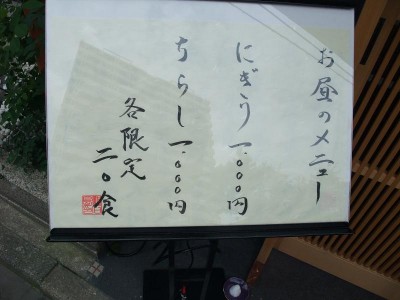 お昼のメニュー
にぎり一、〇〇〇円
ちらし一、〇〇〇円
各限定
二〇食